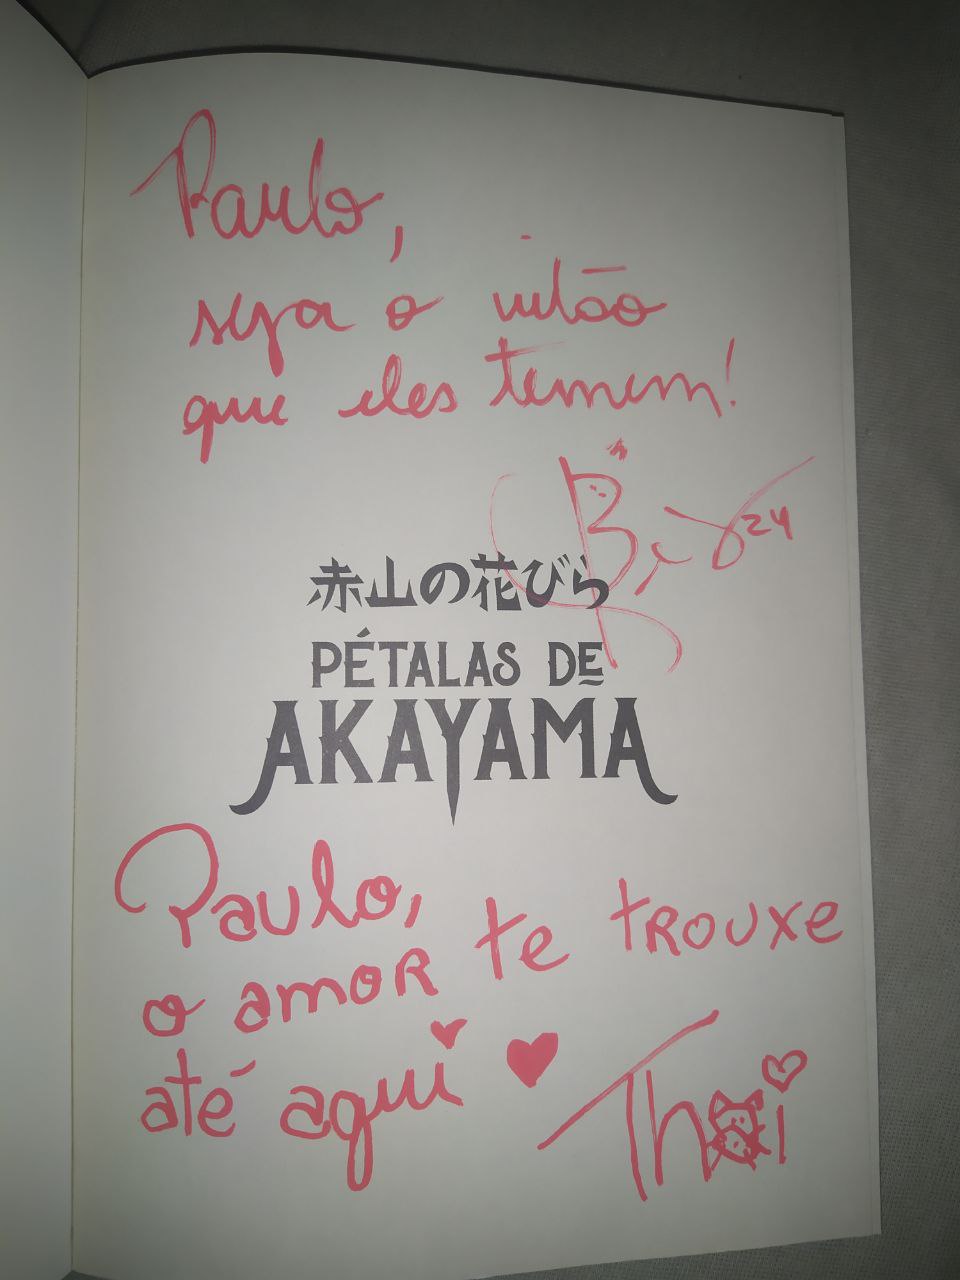 Paulo,
seja o vilão
que eles temem!
24
赤山の花びら
PÉTALAS DE
AKAYAMA
Paulo,
o amor te trouxe
até aqui
Thai